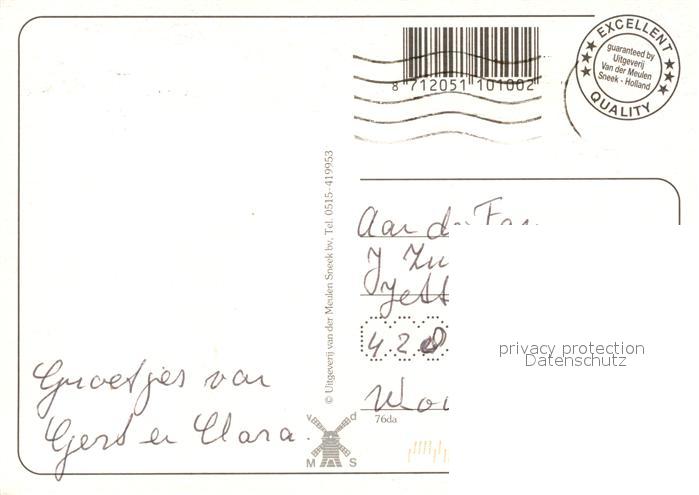 8 712051 101002
EXCELLENT
guaranteed by
Uitgeverij
Van der Meulen
Sneek - Holland
QUALITY
© Uitgeverij van der Meulen Sneek bv. Tel. 0515-419953
Aan de Fam
J Zu
Jett
428
Wou
76da
privacy protection
Datenschutz
Groetjes van
Gert en Clara.
v d
M S